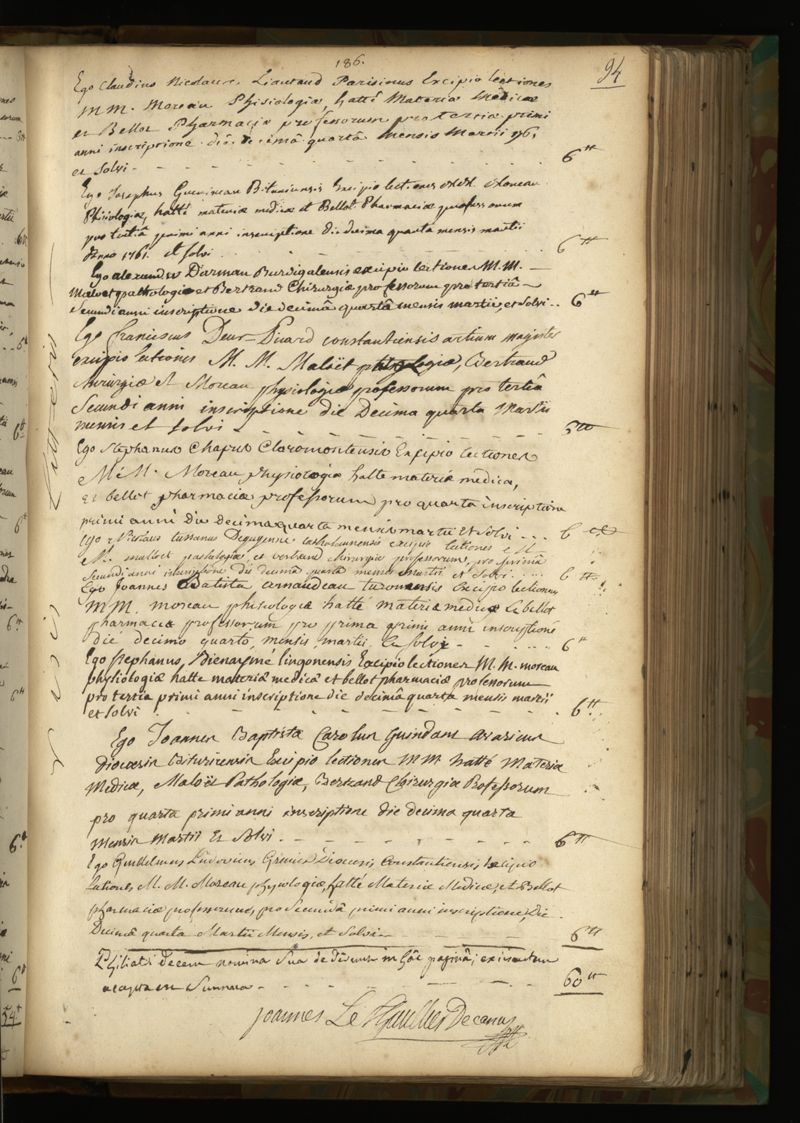 186.
94
Ego Claudius Nicolaus Lieutaud Parisinus Excipio lectiones
MM. Moreau Phisiologiæ, hatté Materiæ Medicæ
et Bellot Pharmaciæ professorum pro tertia primi
anni inscriptione die decimâ quartâ Mensis Martii 176.
et Solvi - - - 6 tt
Ego Josephus Bituriensis Excipio lectiones MM. Moreau
Phisiologiæ, hatté materiæ medicæ et Bellot Pharmaciæ professorum
pro tertiâ primi anni inscriptione die decima quarta mensis martii
Anno 1761. et solvi 6 tt
Ego alexander Darman Burdigalensis excipio lectiones M.M.
Maloet pathologiæ et Bertrand Chirurgiæ professorum pro tertiâ
Secundi anni inscriptione die decimâ quartâ mensis martii, et Solvi - - 6 tt
Ego franciscus Deux-Puard constantiensis artium magister
excipio lectiones M. M. Maloët pathologiæ, Bertrand
chirurgiæ et Moreau physiologiæ professorum pro tertiâ
Secundi anni inscriptione die Decima quarta Martii
mensis et solvi - - -
Ego Stephanus Chaput Claromontensis Excipio lectiones
M.M. Moreau physiologiæ hatte materiæ medicæ,
et bellot pharmaciæ professorum pro quarta inscriptione
primi anni die decima quarta mensis martii Et Solvi - - - 6
Ego Nicolaus excipio lectiones M.
M. malloet pathologiæ, et bertrand chirurgiæ professorum, pro prima
Secundi anni inscriptione die decima quarta mensis martii et Solvi - - - 6 tt
Ego Joannes Batista arnaudeau turonensis Excipio lectiones
MM. moreau phisiologiæ hatté materiæ medicæ Le bellot
pharmaciæ professorum pro prima primi anni inscriptione
die decimo quarto, mensis martii Et solvi - - - 6 tt
Ego Stephanus, Bienaymé lingonensis Excipio lectiones M.M. moreau
physiologiæ hatte materiæ medicæ et bellot pharmaciæ professorum
pro tertia primi anni inscriptione die decimâ quarta mensis martii
et solvi - - - 6 tt
Ego Joannes Baptista Carolus Guindant
diocæsis bituricensis Excipio lectiones MM hatté Materiæ
Medicæ, Maloët Pathologiæ, Bertrand Chirurgiæ Professorum
pro quarta primi anni inscriptione die decima quarta
Mensis Martii Et Solvi - - - 6 tt
Ego Guillelmus Ludovicus Diocesis Constantiensis Excipio
Lectiones M. M. Moreau physiologiæ, hatté Materiæ Medicæ, et Bellot
pharmaciæ professorum, pro Secundâ primi anni inscriptione, Die
Decimâ quarta Martii Mensis, et Solvi - - - 6 tt
Philiatri decem nomina sua dederunt in hâc paginâ,
accepta est Summa - - - 60 tt
Joannes Le Thieullier Decanus